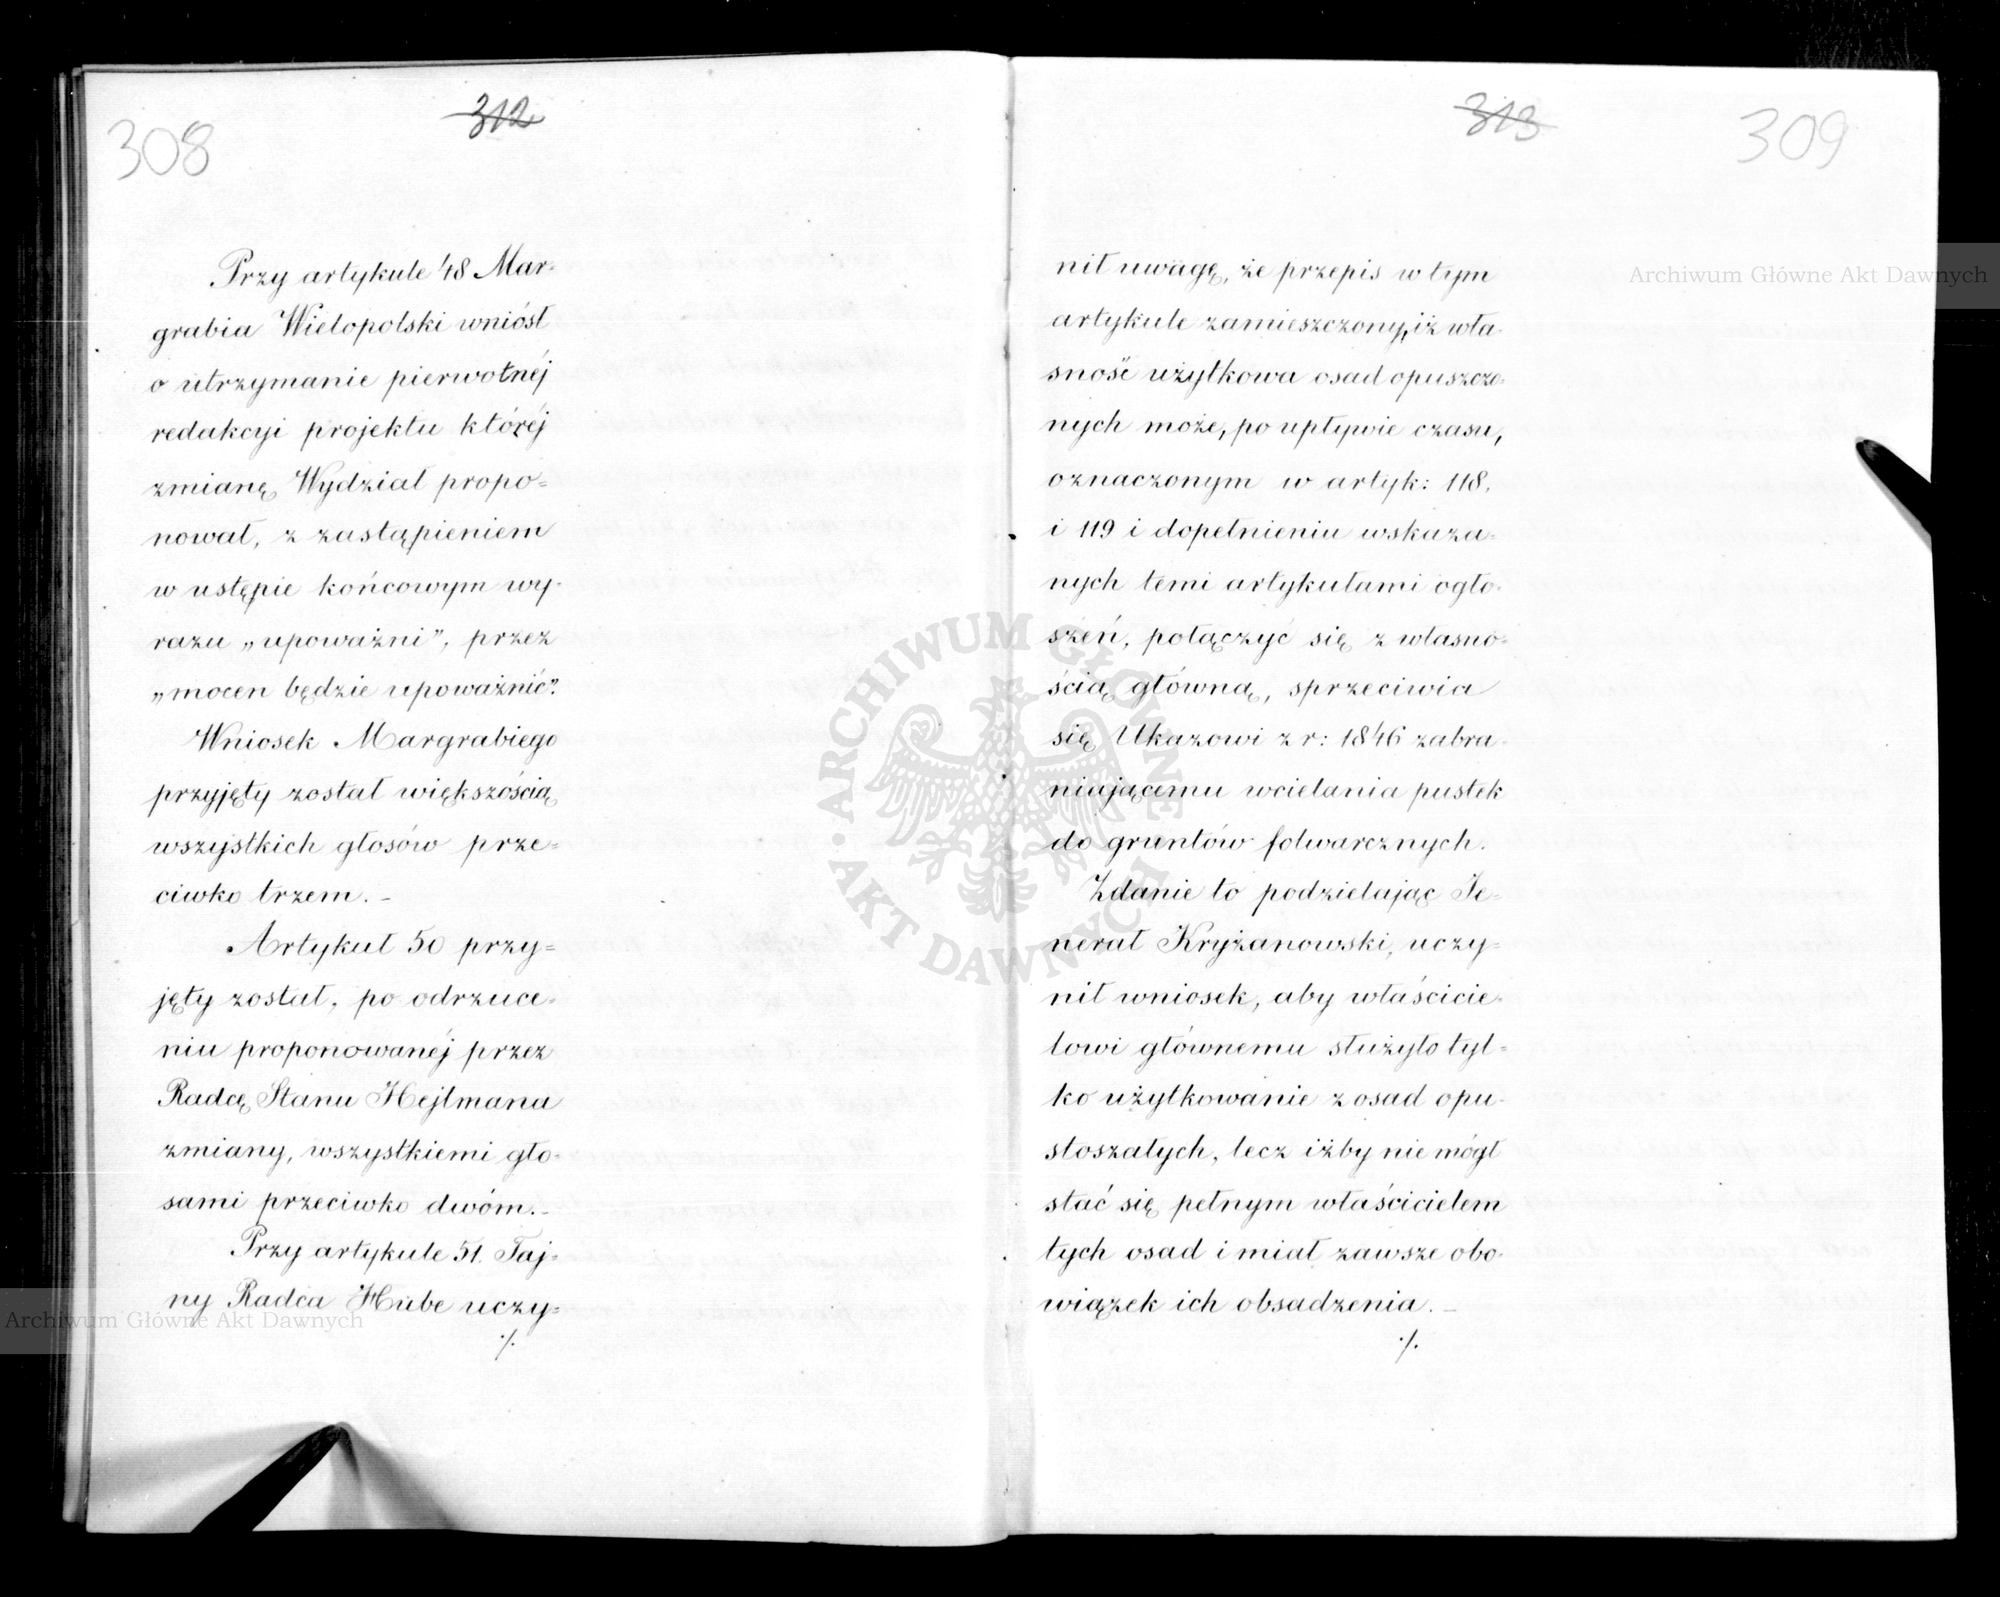 308
312
Przy artykule 48 Mar-
grabia Wielopolski wniósł
o utrzymanie pierwotnéj
redakcyi projektu któréj
zmianę Wydział propo-
nował, z zastąpieniem
w ustępie końcowym wy-
razu „upoważni”, przez
„mocen będzie upoważnić”.
Wniosek Margrabiego
przyjęty został większością
wszystkich głosów prze-
ciwko trzem. –
Artykuł 50 przy-
jęty został, po odrzuce-
niu proponowanéj przez
Radcę Stanu Hejlmana
zmiany, wszystkiemi gło-
sami przeciwko dwóm. –
Przy artykule 51. Taj-
ny Radca Hube uczy-
./.
313
309
nił uwagę, że przepis w tym
artykule zamieszczony, iż wła-
sność użytkowa osad opuszczo-
nych może, po upływie czasu,
oznaczonym w artyk: 118,
i 119 i dopełnieniu wskaza-
nych temi artykułami ogło-
szeń, połączyć się z własno-
ścią główną, sprzeciwia
się Ukazowi z r: 1846 zabra-
niającemu wcielania pustek
do gruntów folwarcznych.
Zdanie to podzielając Je-
nerał Kryżanowski, uczy-
nił wniosek, aby właścicie-
lowi głównemu służyło tyl-
ko użytkowanie z osad opu-
stoszałych, lecz iżby nie mógł
stać się pełnym właścicielem
tych osad i miał zawsze obo-
wiązek ich obsadzenia. –
./.
Archiwum Główne Akt Dawnych
ARCHIWUM GŁÓWNE AKT DAWNYCH
Archiwum Główne Akt Dawnych